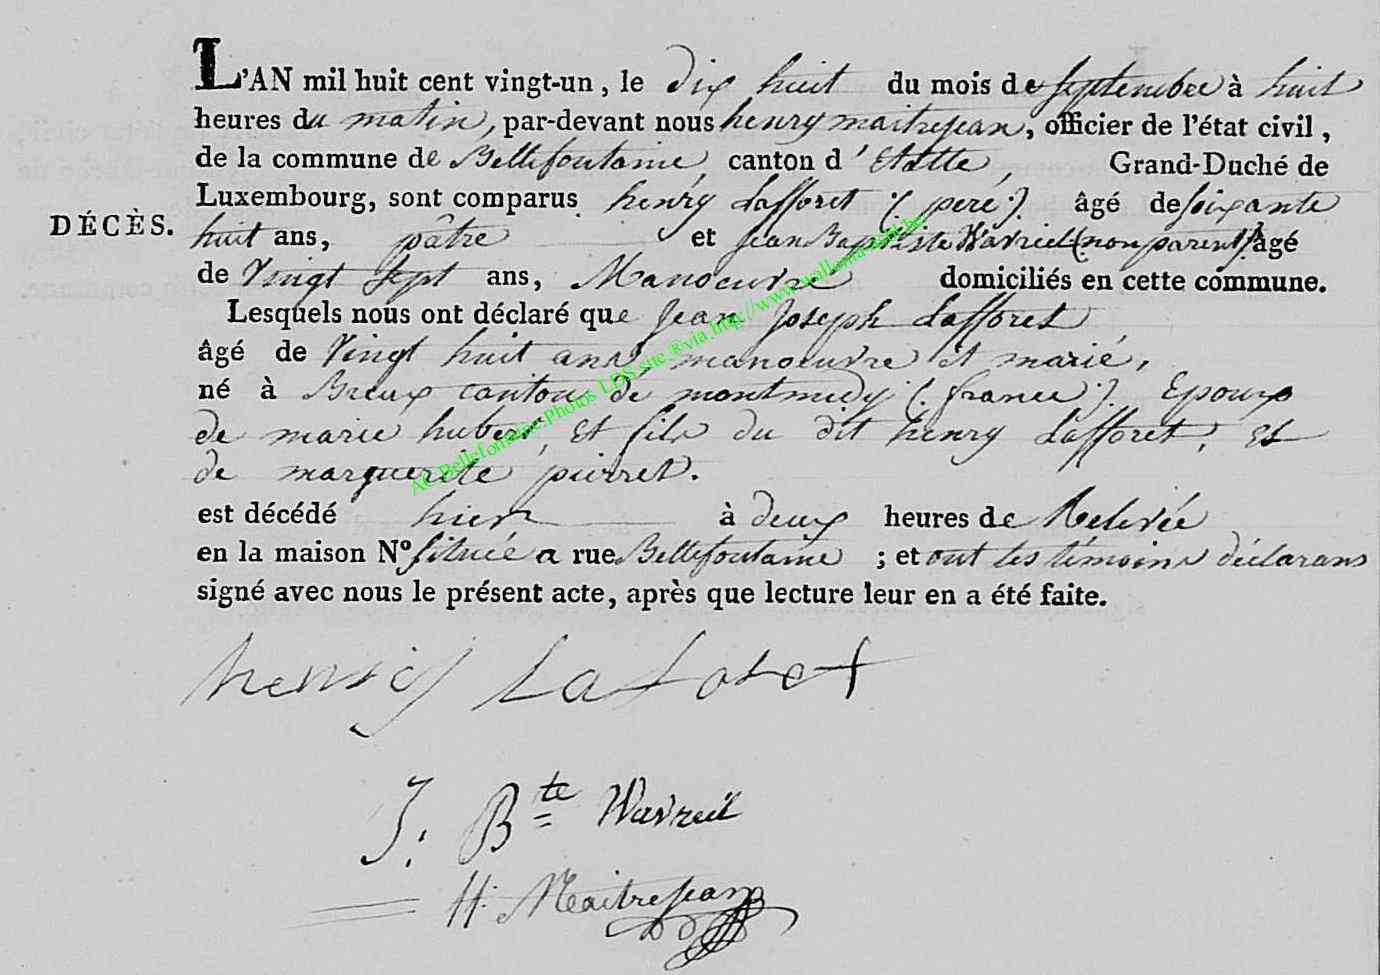 L'AN mil huit cent vingt-un, le dix huit du mois de septembre à huit
heures du matin, par-devant nous henry maitrejean, officier de l'état civil,
de la commune de Bellefontaine, canton d'Etalle, Grand-Duché de
Luxembourg, sont comparus henry Lafforet (: pere :) âgé de soixante
DÉCÈS.
huit ans, pâtre et jean Baptiste Wavreil (non parent) âgé
de Vingt Sept ans, Manoeuvre domiciliés en cette commune.
Lesquels nous ont déclaré que Jean Joseph Lafforet
âgé de Vingt huit ans, manoeuvre et marié,
né à Breux canton de montmedy (: france :). Epoux
de marie hubert, et fils du dit henry Lafforet, et
de marguerite pierret.
est décédé hier à deux heures de Relevée
en la maison N° située a rue Bellefontaine ; et ont les témoins déclarans
signé avec nous le présent acte, après que lecture leur en a été faite.
henry Laforet
J: Bte Wavreil
H: Maitrejean
AC Bellefontaine Photos LDS site ® via http://www.wallonia